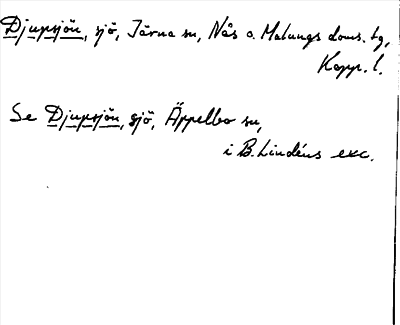 Djupsjön, sjö, Järna sn, Nås o. Malungs doms. tg,
Kopp. l.
Se Djupsjön, sjö, Äppelbo sn,
i B. Lindéns exc.